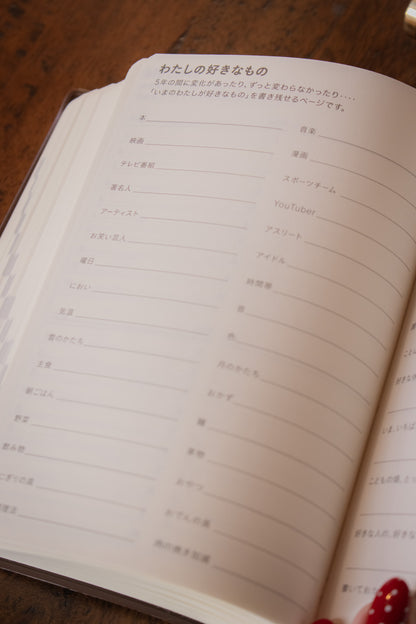 わたしの好きなもの
5年の間に変化があったり、ずっと変わらなかったり‥‥
「いまのわたしが好きなもの」を書き残せるページです。
本
映画
テレビ番組
著名人
アーティスト
お笑い芸人
曜日
におい
気温
雲のかたち
主食
朝ごはん
野菜
飲み物
にぎりの具
音楽
漫画
スポーツチーム
YouTuber
アスリート
アイドル
時間帯
色
月のかたち
おかず
麺
果物
おやつ
おでんの具
肉の焼き加減
こどもの頃、
好きな人の、好き
書いておき